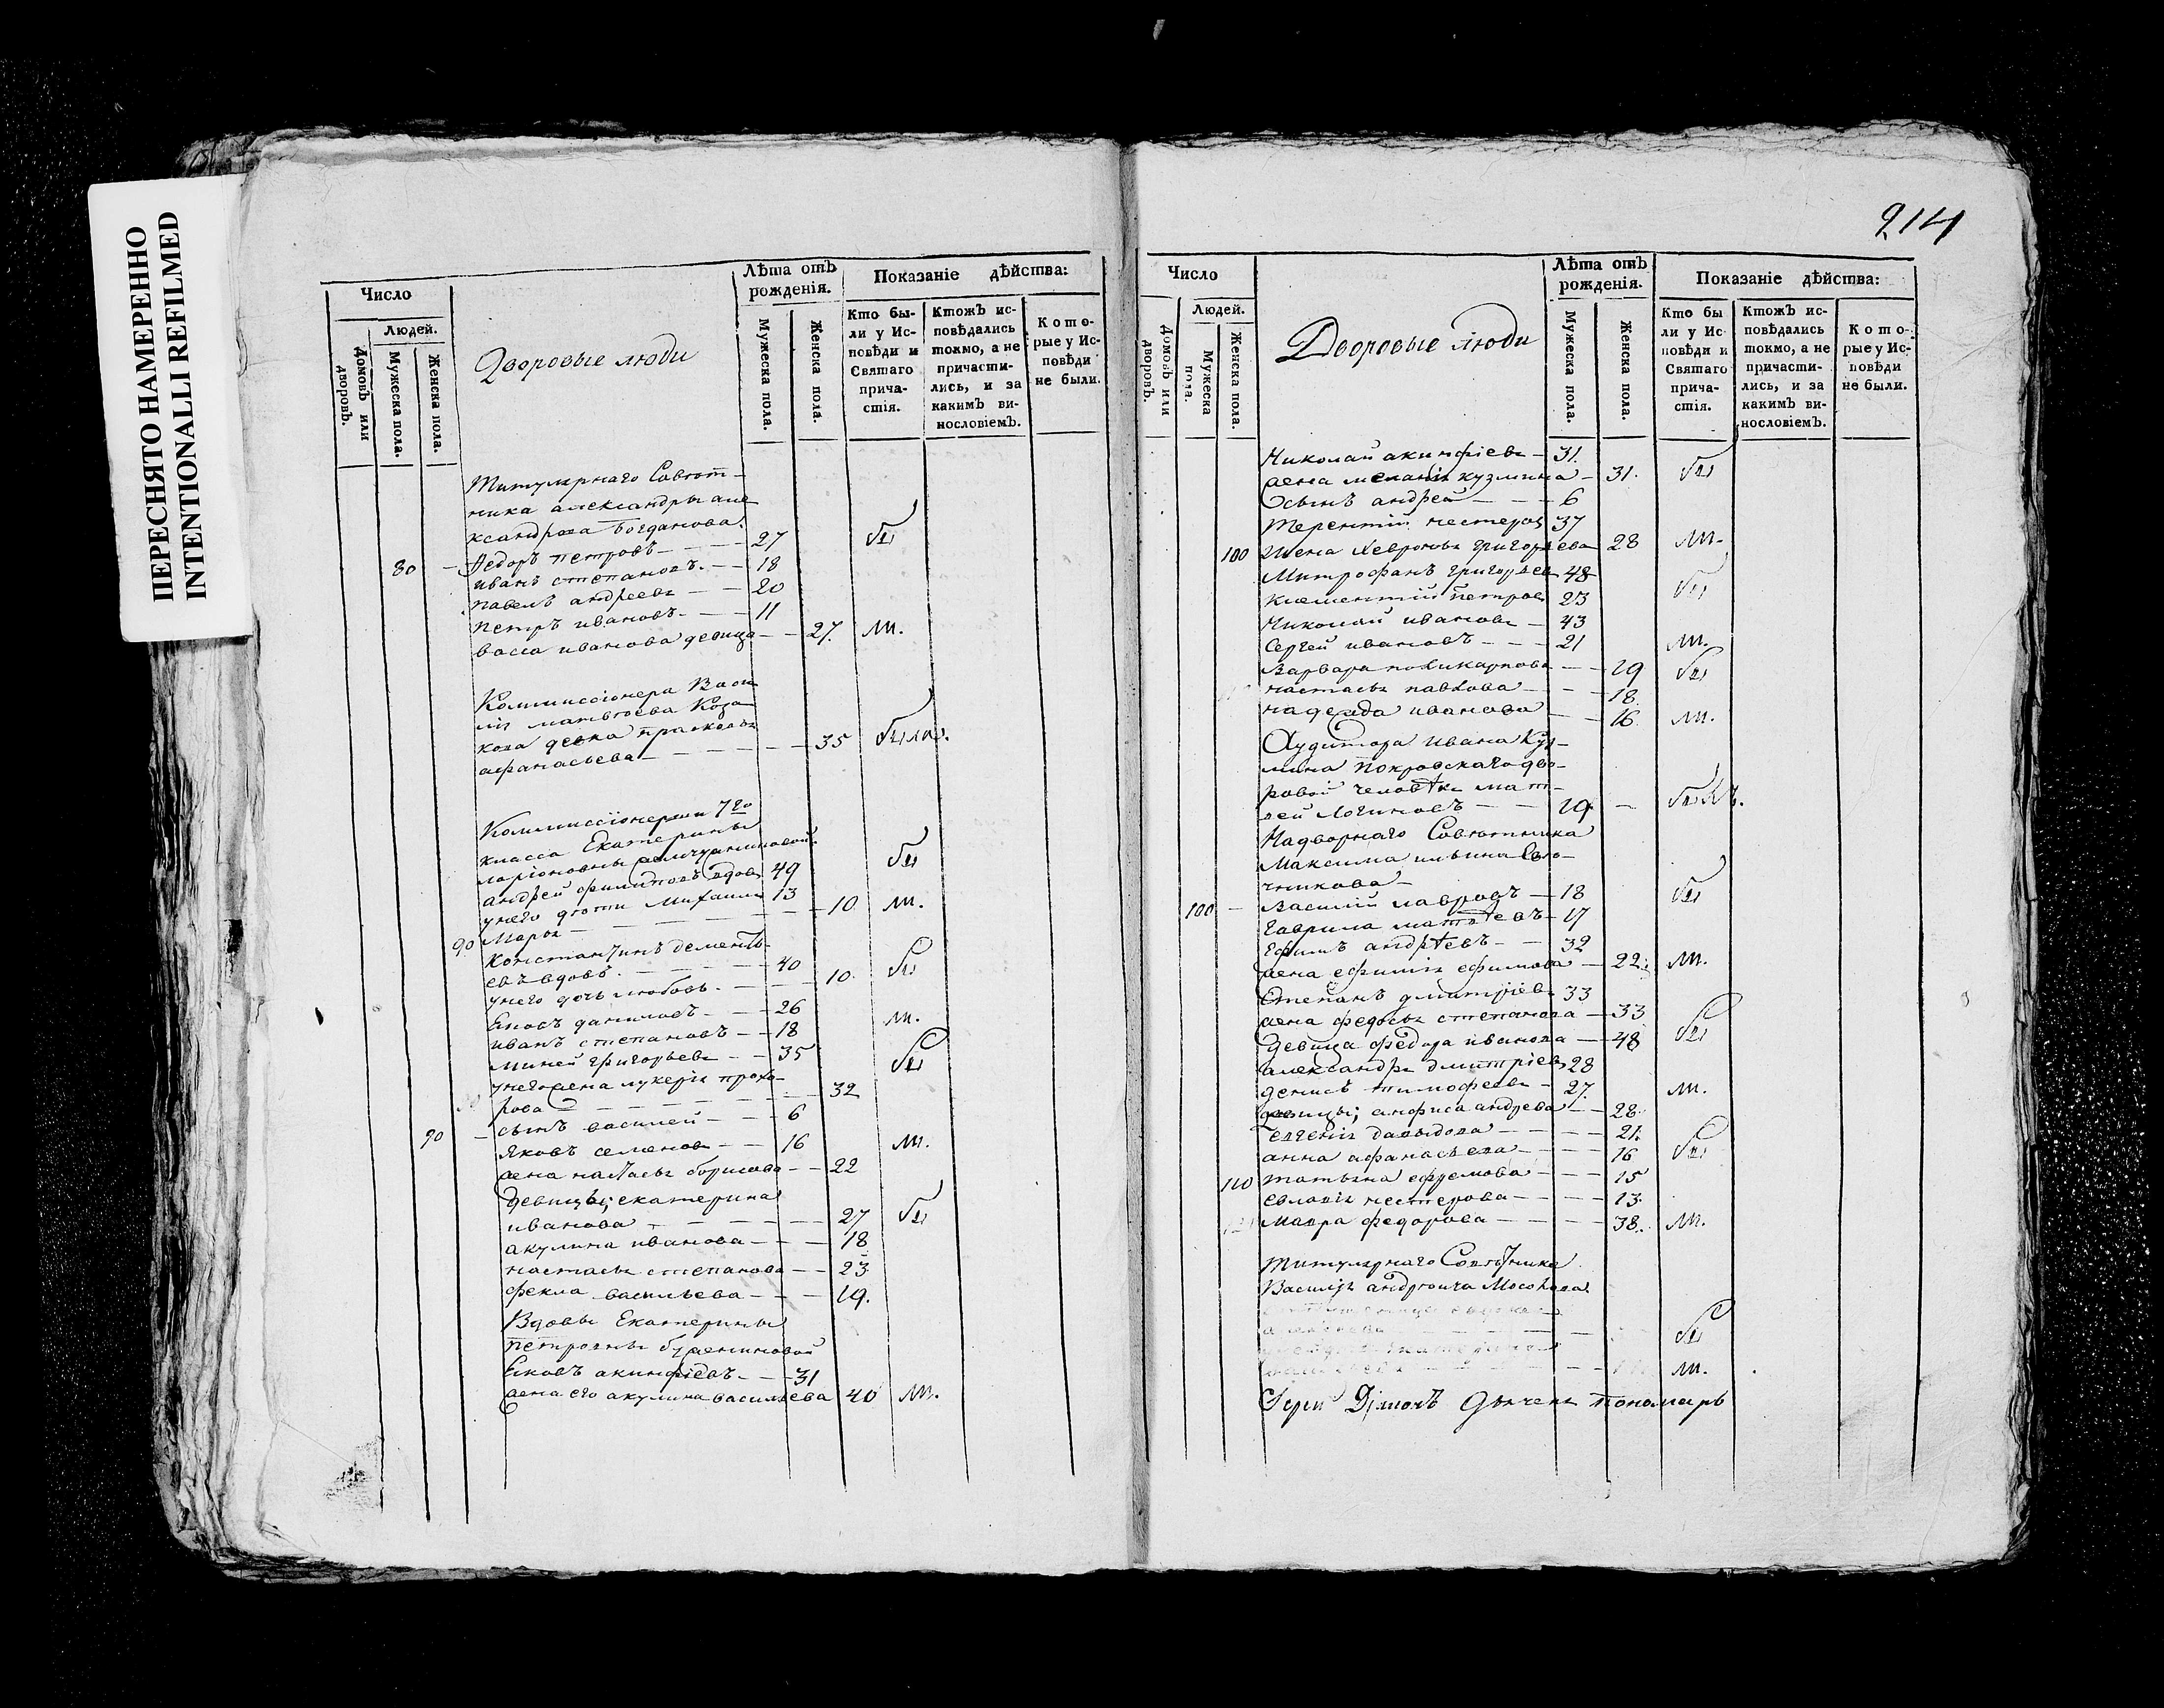 ПЕРЕСНЯТО НАМЕРЕННО
INTENTIONALLI REFILMED
Число
Людей.
Домовъ или дворовъ.
Мужеска пола.
Женска пола.
Дворовые люди
Лѣта отъ рожденія.
Мужеска пола.
Женска пола.
Показаніе дѣйства:
Кто бы-
ли у Ис-
повѣди и
Святаго
прича-
стія.
Ктожъ ис-
повѣдались
токмо, а не
причасти-
лись, и за
какимъ ви-
нословіемъ.
Кото-
рые у Ис-
повѣди
не были.
Титулярнаго Совѣт-
ника александры але
ксандрова Богданова
80 Федоръ петровъ 27 бы
иванъ степановъ 18
павелъ андреевъ 20
петръ ивановъ 11
васса иванова девица 27 ли.
Коммиссіонера Васи
лія матвѣева Коза
кова девка прасковья
афанасьева 35 были.
Коммиссіонерши 7го
класса Екатерины
ларіоновны
андрей филиповъ вдовъ 49 бы
унего дѣти Михаила 13
90 Марья 10 ли.
Константинъ дементь-
евъ вдовъ 40 бы
унего дочь любовь 10
Яковъ даниловъ 26
иванъ степановъ 18 ли.
миней григорьевъ 35 бы
унего жена лукерія прохо-
рова 32
90 сынъ василей 6
Яковъ семеновъ 16 ли.
жена настасья борисова 22
девицы; екатерина
иванова 27 бы
акулина иванова 18
настасья степанова 23
фекла васильева 19.
Вдовы Екатерины
петровны
Яковъ акинфіевъ 31
жена его акулина васильева 40 ли.
214
Число
Людей.
Домовъ или дворовъ.
Мужеска пола.
Женска пола.
Дворовые люди
Лѣта отъ рожденія.
Мужеска пола.
Женска пола.
Показаніе дѣйства:
Кто бы
ли у Ис
повѣди и
Святаго
прича-
стія.
Ктожъ ис-
повѣдались
токмо, а не
причасти-
лись, и за
какимъ ви-
нословіемъ.
Кото-
рые у Ис-
повѣди
не были.
Николай акинфіевъ 31.
жена меланія кузмина 31. бы
сынъ андрей 6
Терентій нестеровъ 37
100 Жена Хевронья григорьева 28 ли.
Митрофанъ григорьевъ 48
климентій петровъ 23 бы
Николай ивановъ 43
Сергей ивановъ 21 ли.
Варвара поликарпова 19 бы
настасья павлова 18
надежда иванова 16 ли.
Аудитора Ивана Куз-
мина покровскаго дво-
ровой человѣкъ мат-
вей Логиновъ 19 былъ.
Надворнаго Совѣтника
Максима ильина
чникова
100 Василій лавровъ 18 бы
Гаврила матвѣевъ 17
Ефимъ андрѣевъ 32
жена ефимія ефимова 22 ли.
Степанъ дмитріевъ 33
жена федосья степанова 33
девица федора иванова 48 бы
александръ дмитріевъ 28
денисъ тимофеевъ 27 ли.
девицы; анфиса андрева 28
евгенія давыдова 21.
анна афанасьева 16 бы
110 татьяна ефремова 15
евлапія нестерова 13
мавра федорова 38. ли.
Титулярнаго Совѣтника
Василія андреича Мосолова
бы
ли.
Іерей Діаконъ Дьячекъ пономарь